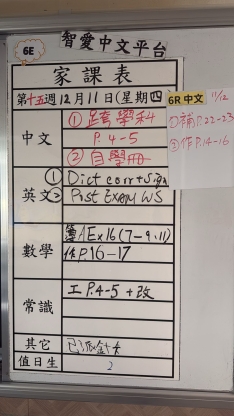 6E
智愛中文平台
家課表
第十五週12月11日(星期四
中文
①跨學科
P.4-5
②自學冊
英文
① Dict corr + Sign
② Post Exam WS
數學
簿AEx16(7-9,11)
作P.16-17
常識
工P.4-5+改
其它
值日生
2
6R中文 11/12
①補P.22-23
②作P.14-16